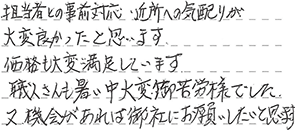 担当者との事前対応・近所への気配りが
大変良かったと思います
価格も大変満足しています
職人さんも暑い中大変御苦労様でした。
又機会があれば御社にお願いしたいと思います